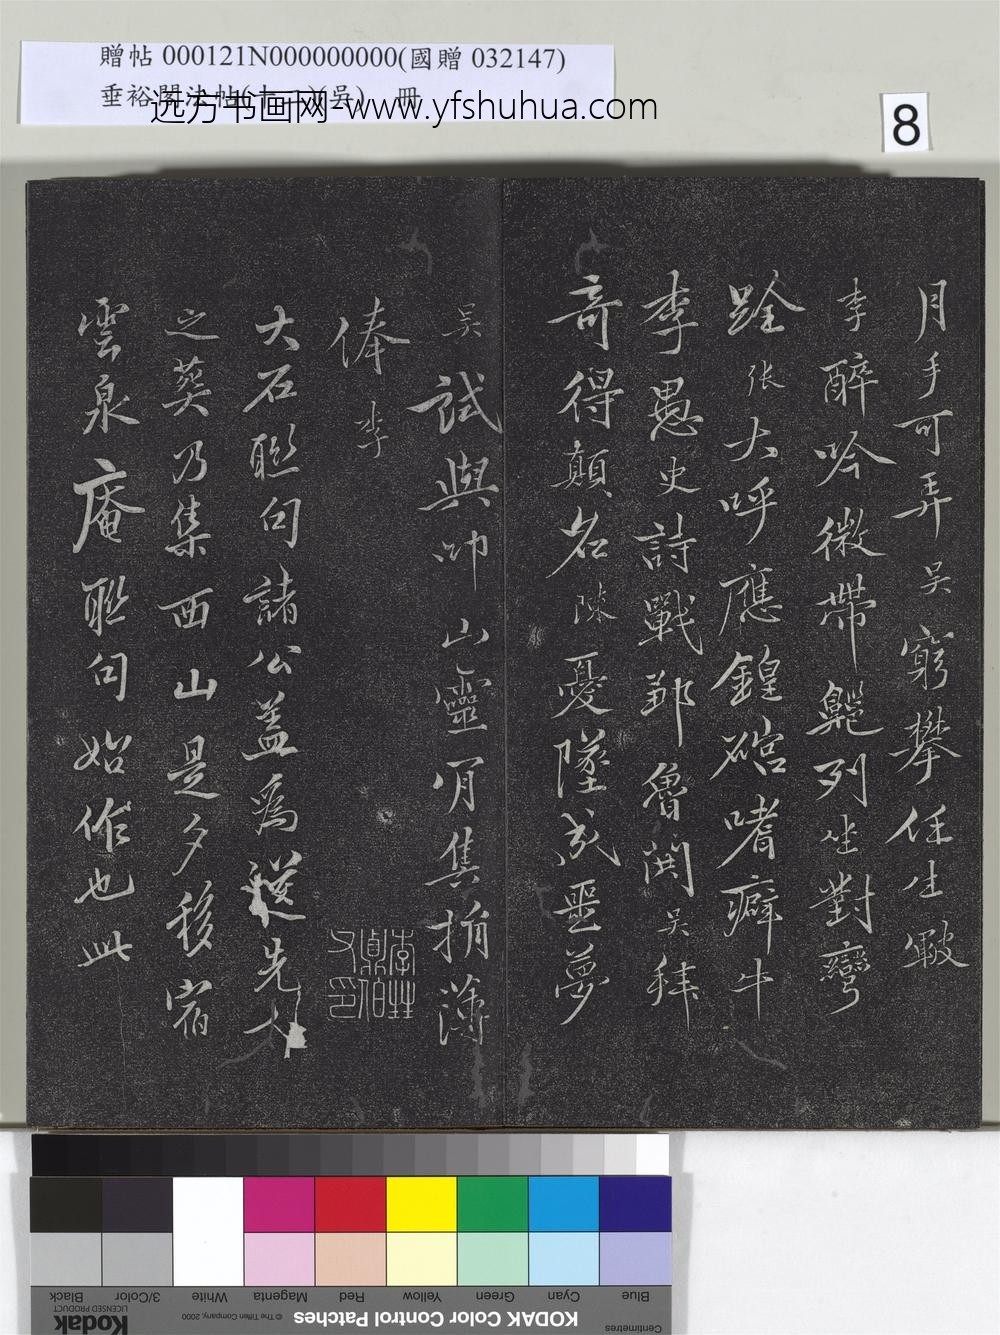 贈帖 000121N000000000(國贈 032147)
垂裕閣法帖 (吳) 冊
远方书画网-www.yfshuhua.com
8
月手可弄吴窮攀任生皸
李醉吟微帶 列坐對彎
跧张大呼應鍠硿嗜癖牛
李愚史詩戰鄒魯鬨吴拜
奇得顛名陳憂墜成噩夢
吴試與叩山靈肎集捐薄
俸李
大石聯句諸公蓋爲送先人
之葬乃集西山是夕移宿
雲泉庵聯句始作也此
李甡
鼎伯
父印
Black
3/Color
White
Magenta
Red
Yellow
Green
Cyan
Blue
Kodak
LICENSED PRODUCT
© The Tiffen Company, 2000
KODAK Color Control Patches
Centimetres